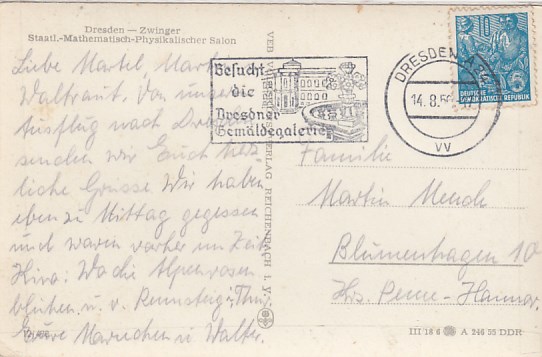 Dresden — Zwinger
Staatl.-Mathematisch-Physikalischer Salon
Liebe Martel, Martin
Waltraut. Von unserem
Ausflug nach Dresden
senden wir Euch herz
liche Grüsse Wir haben
eben zu Mittag gegessen
und waren vorher im Zeit
Kino: Wo die Alpenrosen
blühen u. v. Rennsteig z. Thür
Eure Mariechen u Walter.
VEB REICHENBACH I. V.
Besucht
die
Dresdner
Gemäldegalerie
DRESDEN A
14.8.56
VV
DEUTSCHE
DEMOKRATISCHE REPUBLIK
Familie
Martin
Blumenhagen 10
Krs. Peine-Hannov.
III 18 6 A 246 55 DDR